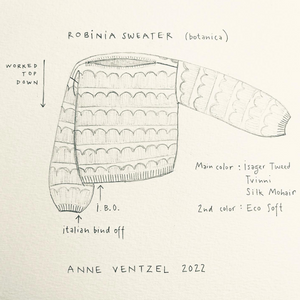 ROBINIA SWEATER (botanica)
WORKED
TOP
DOWN
Main color : Isager Tweed
Tvinni
Silk Mohair
2nd color : Eco Soft
I.B.O.
italian bind off
ANNE VENTZEL 2022